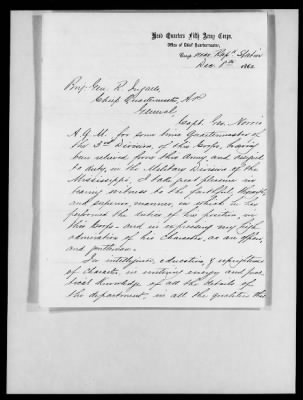 Head Quarters Fifth Army Corps,
Office of Chief Quartermaster,
Camp near Rapp. Station
Dec. 1st 186
Brig. Gen. R. Ingalls
Chief Quartermaster, A.P.
General,
Capt. Geo. Norris
A.Q.M. for some time Quartermaster of
the 3rd Division, of this Corps, having
been relieved from this Army, and assigned
to duty, in the Military Division of the
Mississippi, I take great pleasure in
bearing witness to the faithful,
and superior manner, in which he has
performed the duties of his position, in
this Corps - and in expressing my high
admiration of his Character, as an officer,
and gentleman.
In intelligence, education, & uprightness
of character, in untiring energy and prac
tical knowledge of all the details of
the department, in all the qualities that